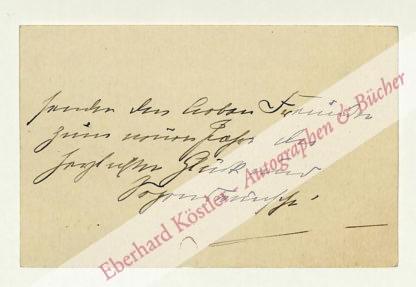 senden den lieben Freunden
zum neuen Jahr die
herzlichsten Glück- und
Segenswünsche!
Eberhard Köstler Autographen & Bücher